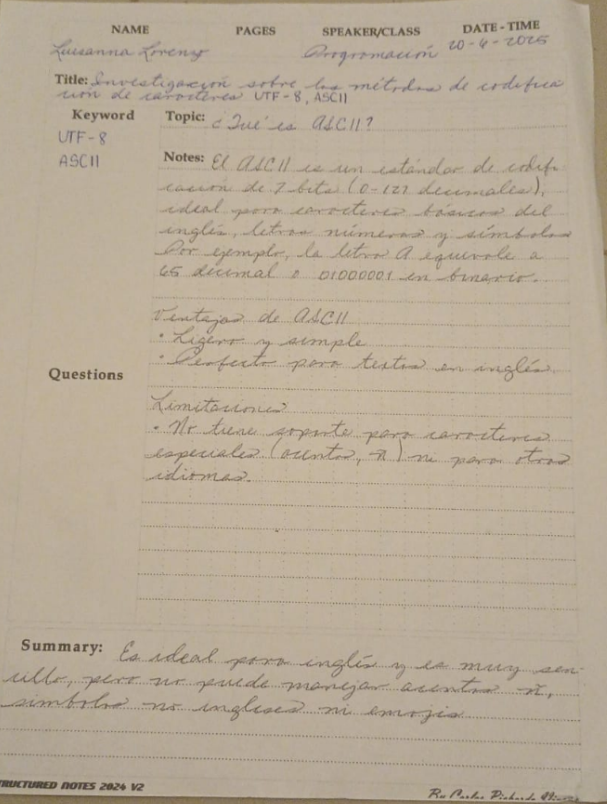 NAME PAGES SPEAKER/CLASS DATE - TIME
Luisanna Lorenzo Programación 20-4-2025
Title: Investigación sobre los métodos de codifica
ción de caracteres UTF-8, ASCII
Keyword
UTF-8
ASCII
Topic: ¿Qué es ASCII?
Notes: El ASCII es un estándar de codifi
cación de 7 bits (0-127 decimales),
ideal para caracteres básicos del
inglés, letras números y símbolos
Por ejemplo, la letra A equivale a
65 decimal o 01000001 en binario.
Ventajas de ASCII
• Ligero y simple
• Perfecto para textos en inglés.
Questions
Limitaciones
• No tiene soporte para caracteres
especiales (acentos, ñ) ni para otros
idiomas.
Summary: Es ideal para inglés y es muy sen-
cillo, pero no puede manejar acentos ñ,
símbolos no ingleses ni emojis
TRUCTURED NOTES 2024 V2
By Carlos Pichardo